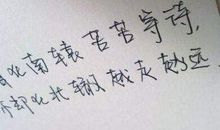 此南辕苦苦等待,
此北辙越走越远